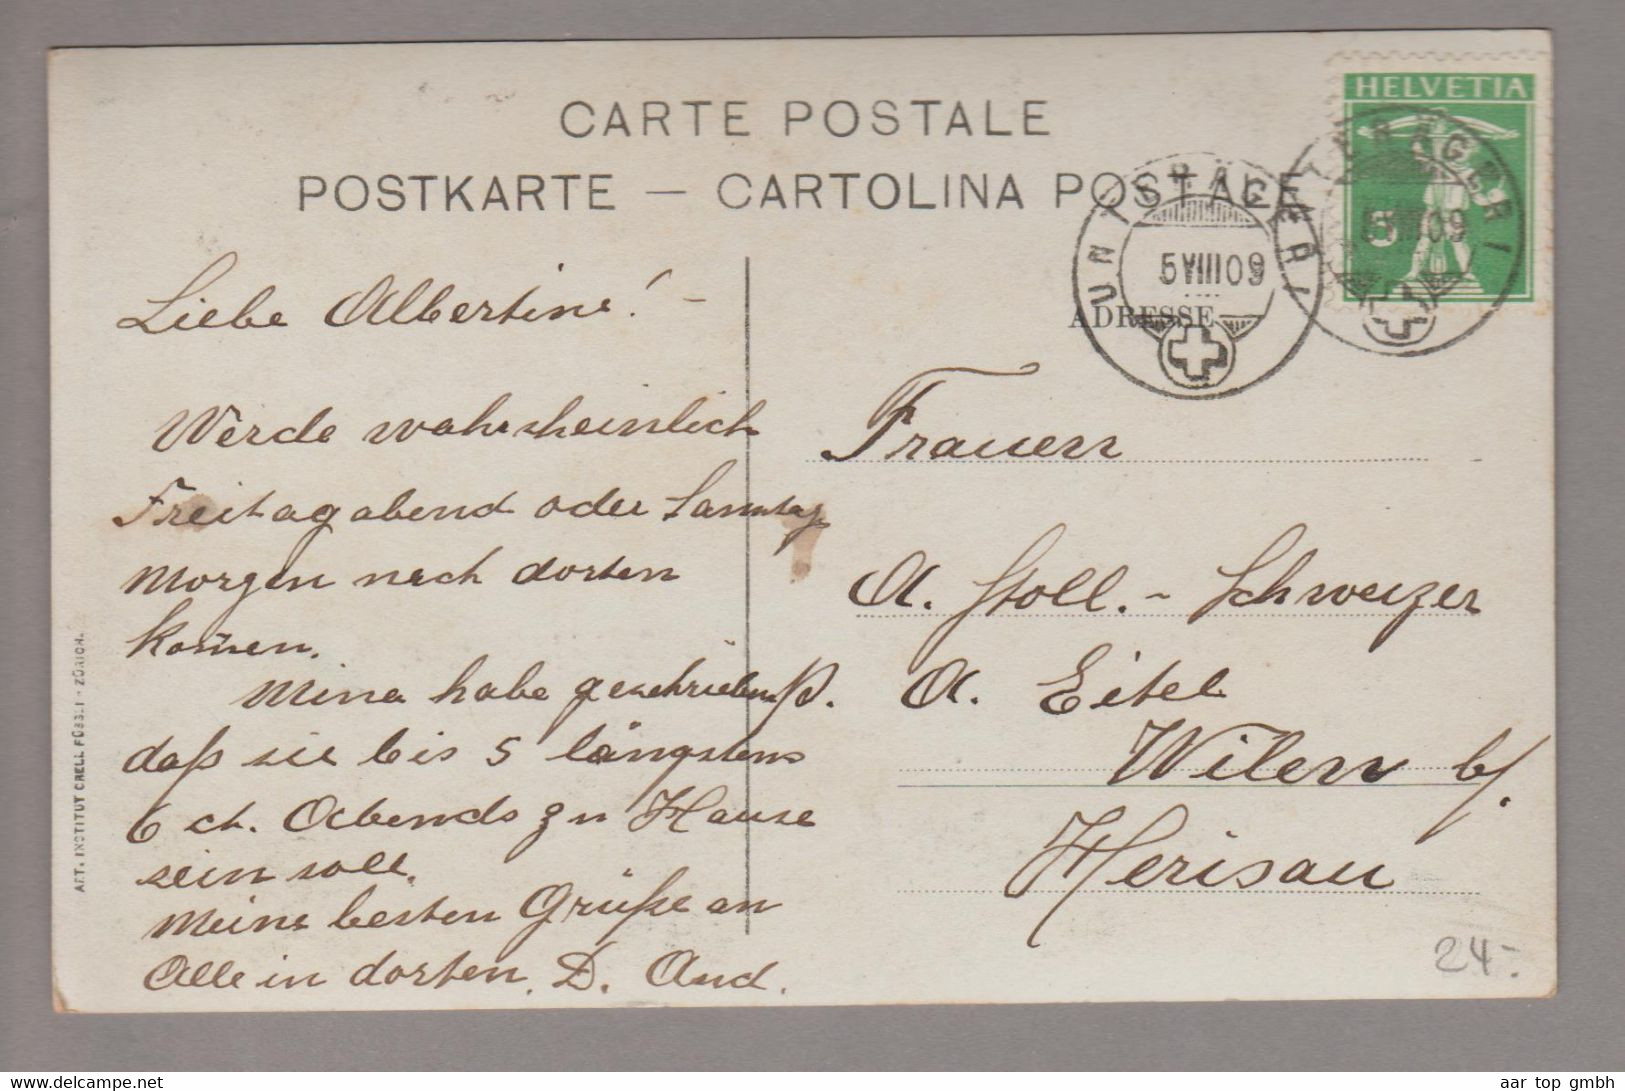 CARTE POSTALE
POSTKARTE — CARTOLINA POSTALE
HELVETIA
5
UNTERÄGERI
5 VIII 09
UNTERÄGERI
5 VIII 09
ADRESSE
Liebe Albertine! -
Werde wahrscheinlich
Freitag abend oder Samstag
Morgen nach dorten
kom̄en.
Mina habe geschrieben
daß sie bis 5 längstens
6 Abends zu Hause
sein soll.
Meine besten Grüße an
Alle in dorten. D. And.
Frauen
A. Stoll. - Schweizer
A. Eitel
Wilen b/.
Herisau
ART. INSTITUT ORELL FÜSSLI - ZÜRICH.
24-.
aar top gmbh